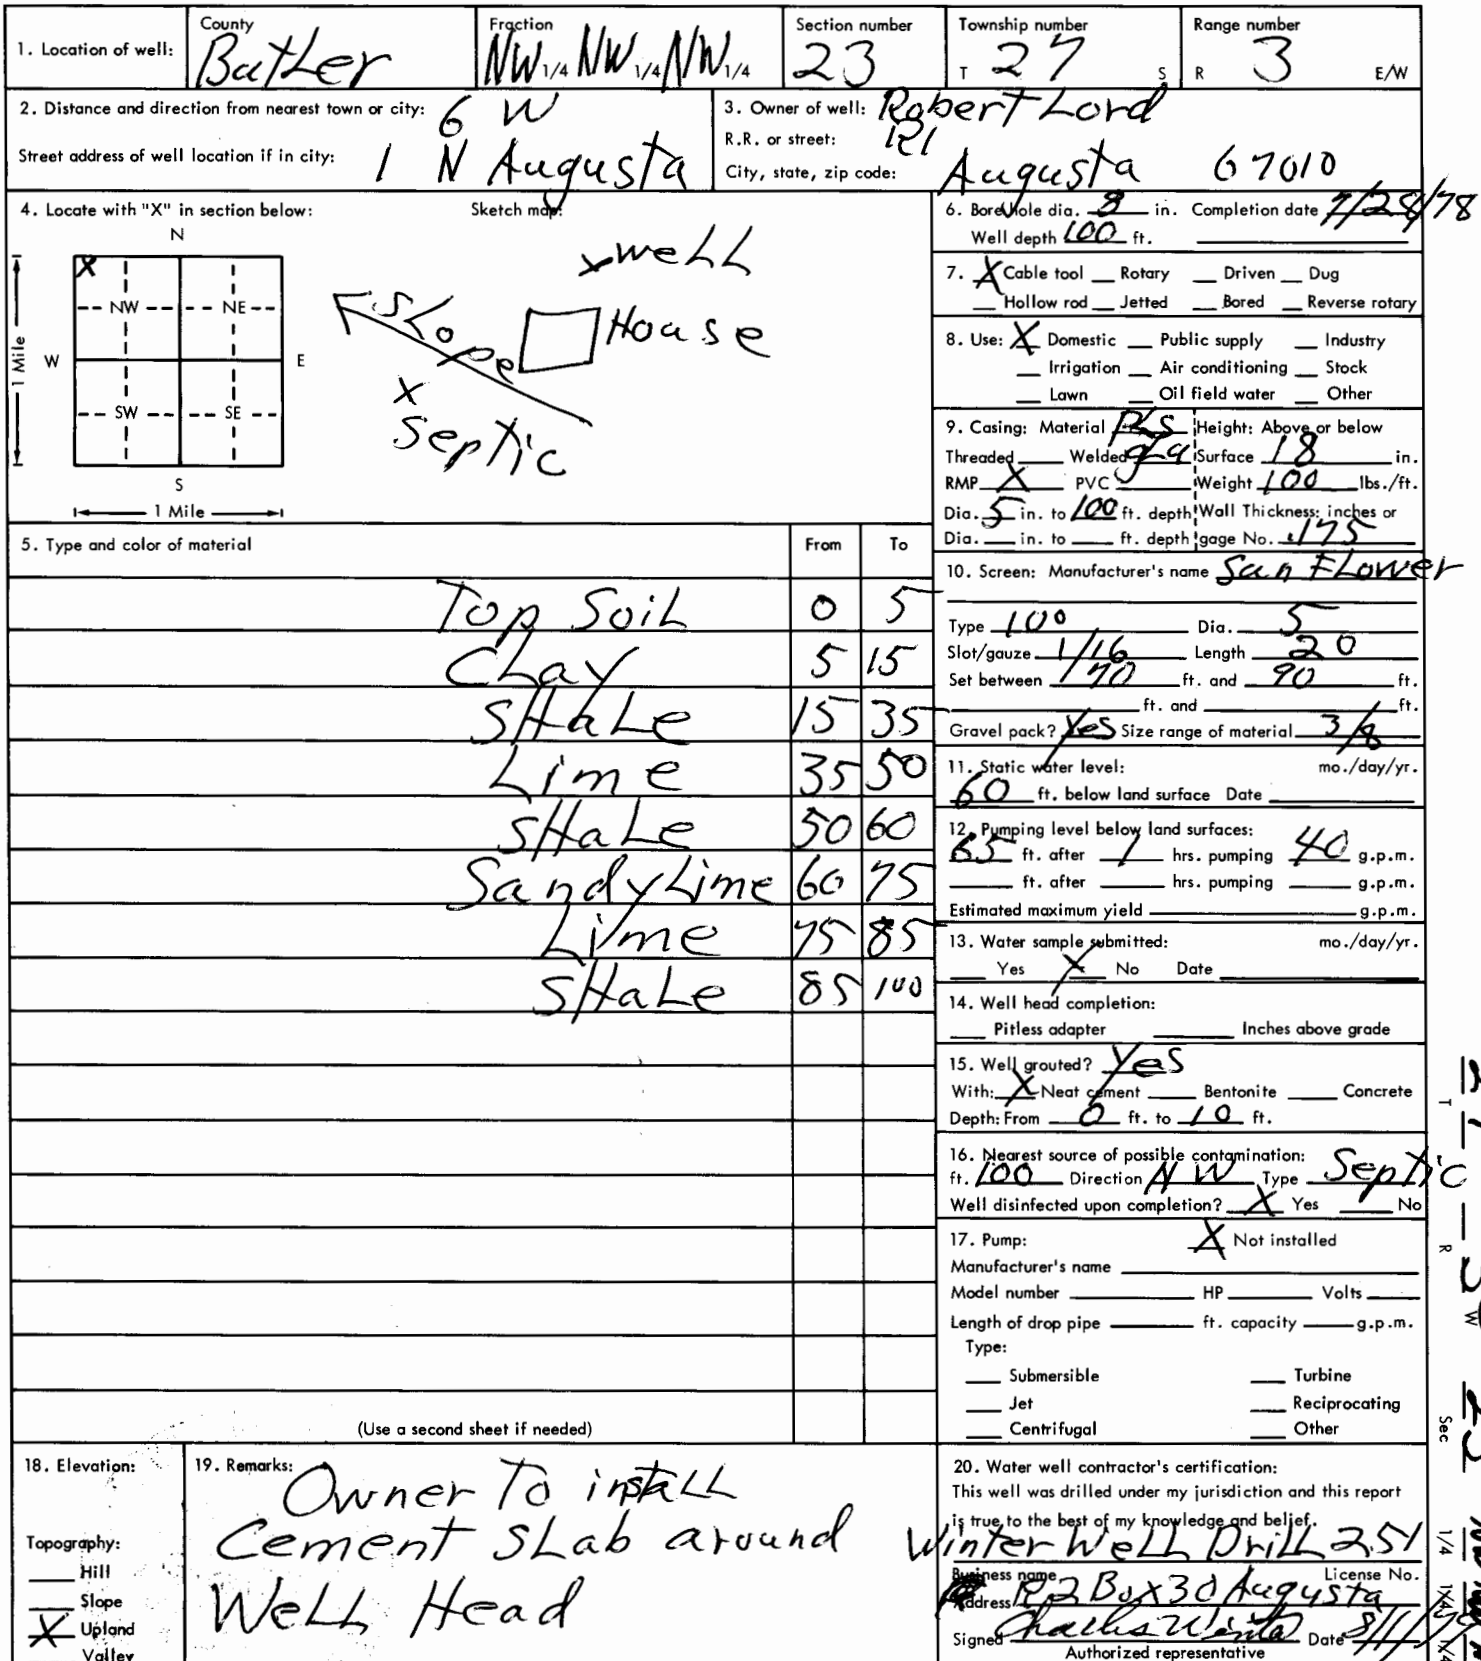 1. Location of well: County Butler Fraction NW 1/4 NW 1/4 NW 1/4 Section number 23 Township number T 27 S Range number R 3 E/W
2. Distance and direction from nearest town or city: 6 W
Street address of well location if in city: 1 N Augusta
3. Owner of well: Robert Lord
R.R. or street: R1
City, state, zip code: Augusta 67010
4. Locate with "X" in section below:
N
X
NW NE
W E
SW SE
S
1 Mile
1 Mile
Sketch map:
x well
Slope
House
x
Septic
5. Type and color of material From To
Top Soil 0 5
Clay 5 15
SHaLe 15 35
Lime 35 50
SHaLe 50 60
Sandy Lime 60 75
Lime 75 85
SHaLe 85 100
(Use a second sheet if needed)
6. Bore hole dia. 8 in. Completion date 7/28/78
Well depth 100 ft.
7. X Cable tool Rotary Driven Dug
Hollow rod Jetted Bored Reverse rotary
8. Use: X Domestic Public supply Industry
Irrigation Air conditioning Stock
Lawn Oil field water Other
9. Casing: Material PLS Height: Above or below
Threaded Welded gLq Surface 18 in.
RMP X PVC Weight 100 lbs./ft.
Dia. 5 in. to 100 ft. depth Wall Thickness: inches or
Dia. in. to ft. depth gage No. .175
10. Screen: Manufacturer's name Sun FLower
Type 100 Dia. 5
Slot/gauze 1/16 Length 20
Set between 70 ft. and 90 ft.
ft. and ft.
Gravel pack? Yes Size range of material 3/8
11. Static water level: mo./day/yr.
60 ft. below land surface Date
12. Pumping level below land surfaces:
65 ft. after 1 hrs. pumping 40 g.p.m.
ft. after hrs. pumping g.p.m.
Estimated maximum yield g.p.m.
13. Water sample submitted: mo./day/yr.
Yes X No Date
14. Well head completion:
Pitless adapter Inches above grade
15. Well grouted? Yes
With: X Neat cement Bentonite Concrete
Depth: From 0 ft. to 10 ft.
16. Nearest source of possible contamination:
ft. 100 Direction NW Type Septic
Well disinfected upon completion? X Yes No
17. Pump: X Not installed
Manufacturer's name
Model number HP Volts
Length of drop pipe ft. capacity g.p.m.
Type:
Submersible Turbine
Jet Reciprocating
Centrifugal Other
18. Elevation:
Topography:
Hill
Slope
X Upland
Valley
19. Remarks: Owner To install
Cement SLab around
WeLL Head
20. Water well contractor's certification:
This well was drilled under my jurisdiction and this report
is true to the best of my knowledge and belief.
Winter WeLL DriLL 251
Business name License No.
Address R2 Box 30 Augusta
Signed Charles Winter Date 8/1/78
Authorized representative
T R W Sec 1/4 1/4 1/4